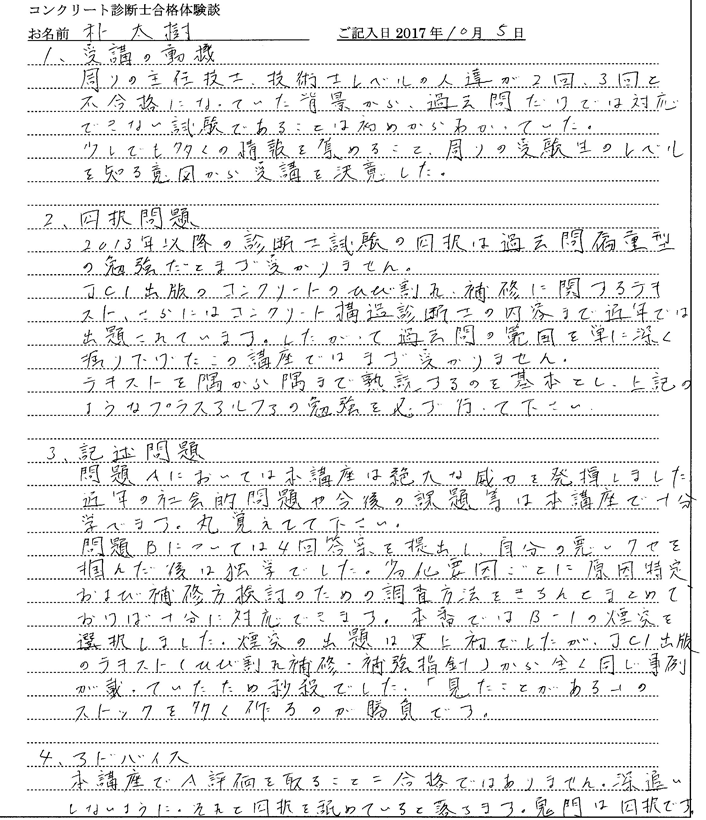 コンクリート診断士合格体験談
お名前 朴 太樹 ご記入日 2017年10月5日
1、受講の動機
周りの主任技士、技術士レベルの人達が2回、3回と
不合格になっていた背景から、過去問だけでは対応
できない試験であることは初めからわかっていた。
少しでも多くの情報を集めること、周りの受験生のレベル
を知る意図から受講を決意した。
2、四択問題
2013年以降の診断士試験の四択は過去問偏重型
の勉強だとまず受かりません。
JCI出版のコンクリートのひび割れ、補修に関するテキ
スト、さらにはコンクリート構造診断士の内容まで近年では
出題されています。したがって過去問の範囲を単に深く
掘り下げたこの講座ではまず受かりません。
テキストを隅から隅まで熟読するのを基本とし、上記の
ようなプラスアルファの勉強を必ず行って下さい。
3、記述問題
問題Aにおいては本講座は絶大な威力を発揮しました
近年の社会的問題や今後の課題等は本講座で十分
学べます。丸覚えして下さい。
問題Bについては4回答案を提出し、自分の悪いクセを
掴んだ後は独学でした。劣化要因ごとに原因特定
および補修方検討のための調査方法をきちんとまとめて
おけば十分に対応できます。本番ではB-1の煙突を
選択しました。煙突の出題は史上初でしたが、JCI出版
のテキスト(ひび割れ補修・補強指針)から全く同じ事例
が載っていたため秒殺でした。「見たことがある」の
ストックを多く作るのが勝負です。
4、アドバイス
本講座でA評価を取ること=合格ではありません。深追い
しないように。それと四択を舐めていると落ちます。鬼門は四択です。